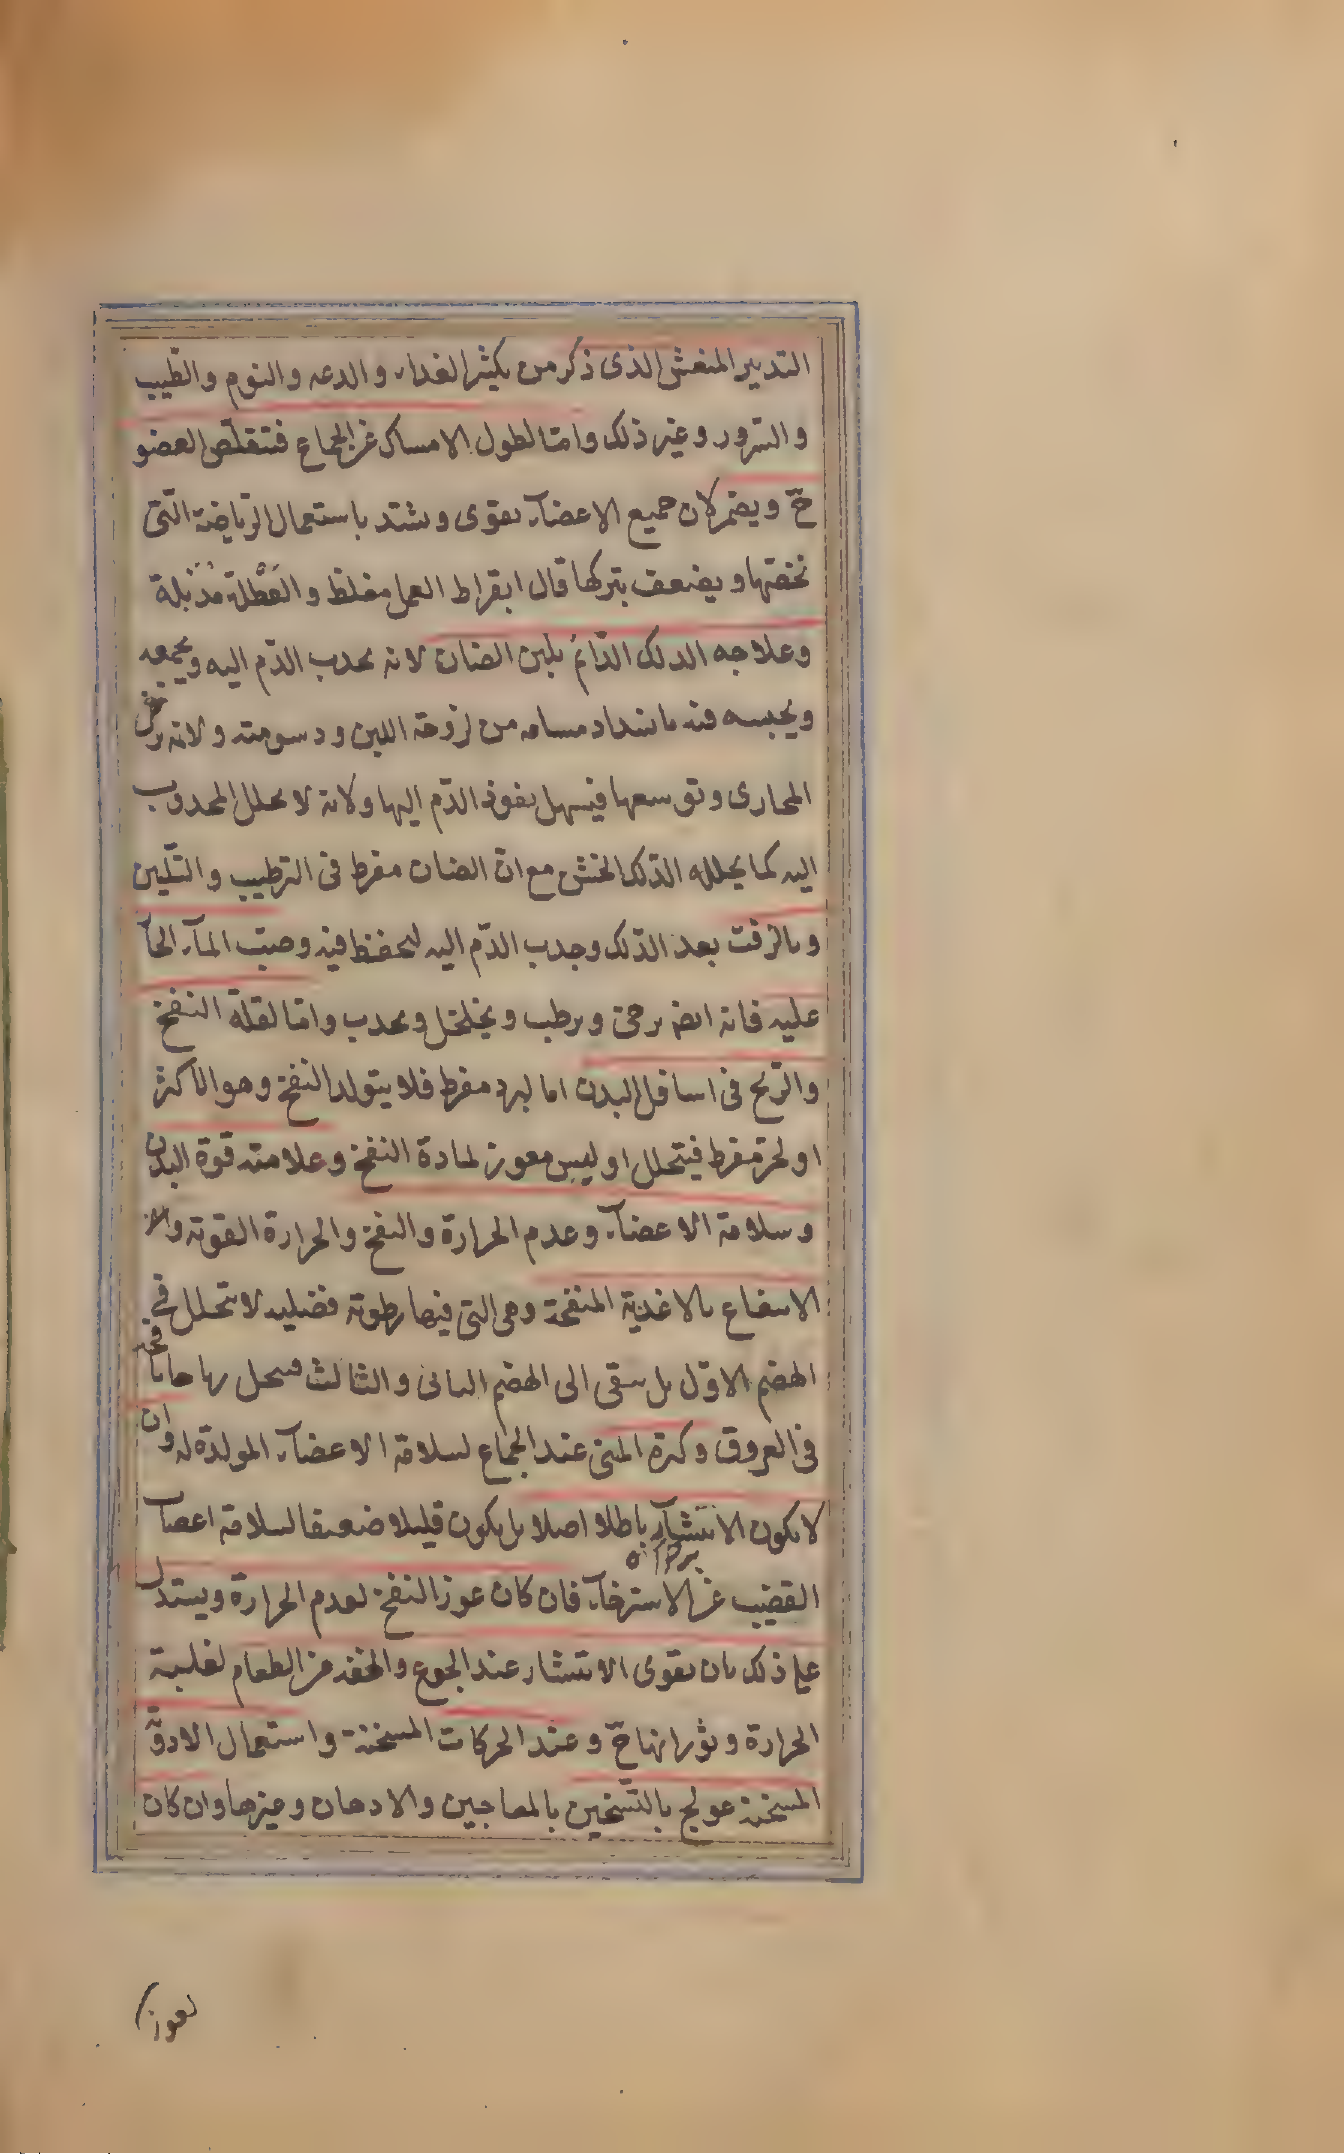 التدبير المنعش الذى ذكر من تكثير الغداء والدعه والنوم والطّيب
والسّرور وغير ذلك وامّا لطول الامساك عن الجماع فتتقلّص العضو
حّ ويضمر لان جميع الاعضآء تقوى وتشتد باستعمال الرّياضة الّتى
تخصّها ويضعف بتركها قال ابقراط العمل مغلظ والعَطْلة مُذَبلة
وعلاجه الدلك الدّائم بلبن الضان لانه يجدب الدّم اليه ويجمعه
ويحبسه فيه بانسداد مسامه من لزوجة اللبن ودسومته ولانه يرخى
المجارى وتوسعها فيسهل نفوذ الدّم اليها ولانه لا يحلل المجدوب
اليه كما يحلله الدّلك الخشن مع انّ الضان مفرط فى الترطيب والتّليين
وبالزفت بعد الدّلك وجدب الدّم اليه ليحفظ فيه وصبّ المآء الحآ
عليه فانه ايضا يرخى ويرطب ويخلخل ويجدب وامّا لقلّة النفخ
والرّيح فى اسافل البدن اما لبرد مفرط فلا يتولد النفخ وهو الاكثر
او لحرّ مفرط فيتحلل او ليبس معوز لمادة النفخ وعلامته قوّة البدن
وسلامة الاعضآء وعدم الحرارة والنفخ والحرارة القوته والا
الانتفاع بالاغذية المنفخة وهى التى فيها رطوبة فضليه لا تتحلل فى
الهضم الاوّل بل تبقى الى الهضم الثانى والثالث فتحل رياحا نافخه
فى العروق وكثرة المنى عند الجماع لسلامة الاعضآء المولدة له وان
لا يكون الانتشآر باطلا اصلا بل يكون قليلا ضعيفا لسلامة اعصاب
القضيب عن الاسترخآء فان كان عوز النفخ لعدم الحرارة ويستدل
على ذلك بان تقوى الانتشار عند الجوع والخفه من الطعام لغلبة
الحرارة وثورانها حّ وعند الحركات المسخنة واستعمال الادويّة
المسخنة عولج بالتّسخين بالمعاجين والادهان وغيرها وان كان
لعوز